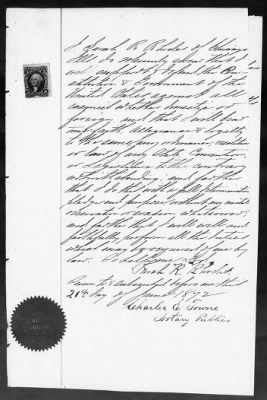 I Sarah R. Rhodes of Chicago
Ills. do solemnly swear that I
will support & defend the Con
stitution & Government of the
United States against all
enemies whether domestic or
foreign, and that I will bear
true faith, Allegiance & loyalty
to the same any ordinance, resolution
or law of any State Convention
or Legislature to the contrary
notwithstanding, and further
that I do this with a full determination
pledge and purpose without any mental
reservation or evasion whatsoever,
and further that I will well and
faithfully perform all the duties
which may be required of me by
law. So help me God
Sarah R.
Sworn to & subscribed before me this
20th day of June 1872
Charles C. Towne
Notary Public